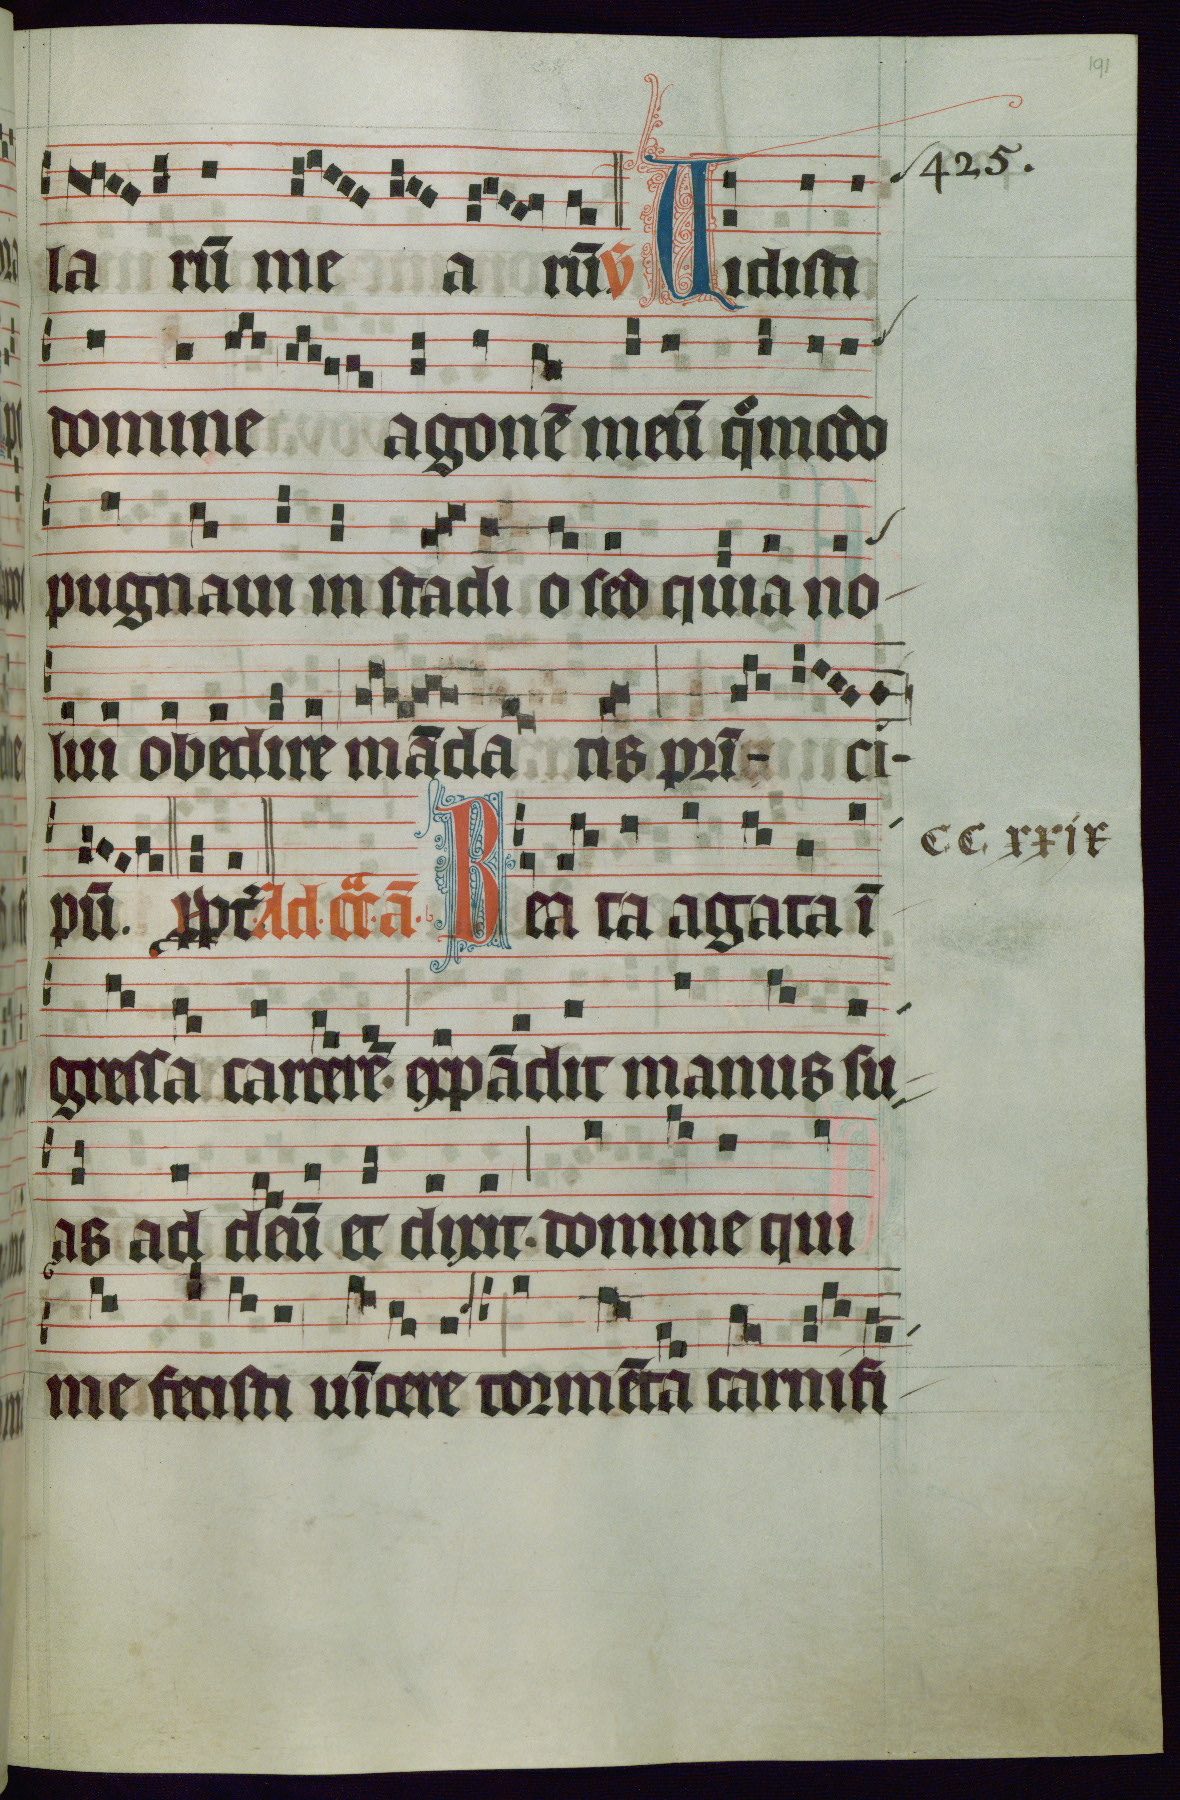 191
la rū me a rū. v̄ Uidisti 425.
domine agonē meū q̄mcdo
pugnaui in stadi o sed quia no
lui obedire māda tis prī- ci-
pū. ppt̄ Ad c̄c̄. ā. Bea ta agata ī CC xxix
gressa carcerē. expādit manus su
as ad deū et dixit. domine qui
me fecisti uīcere tormēta carnifi